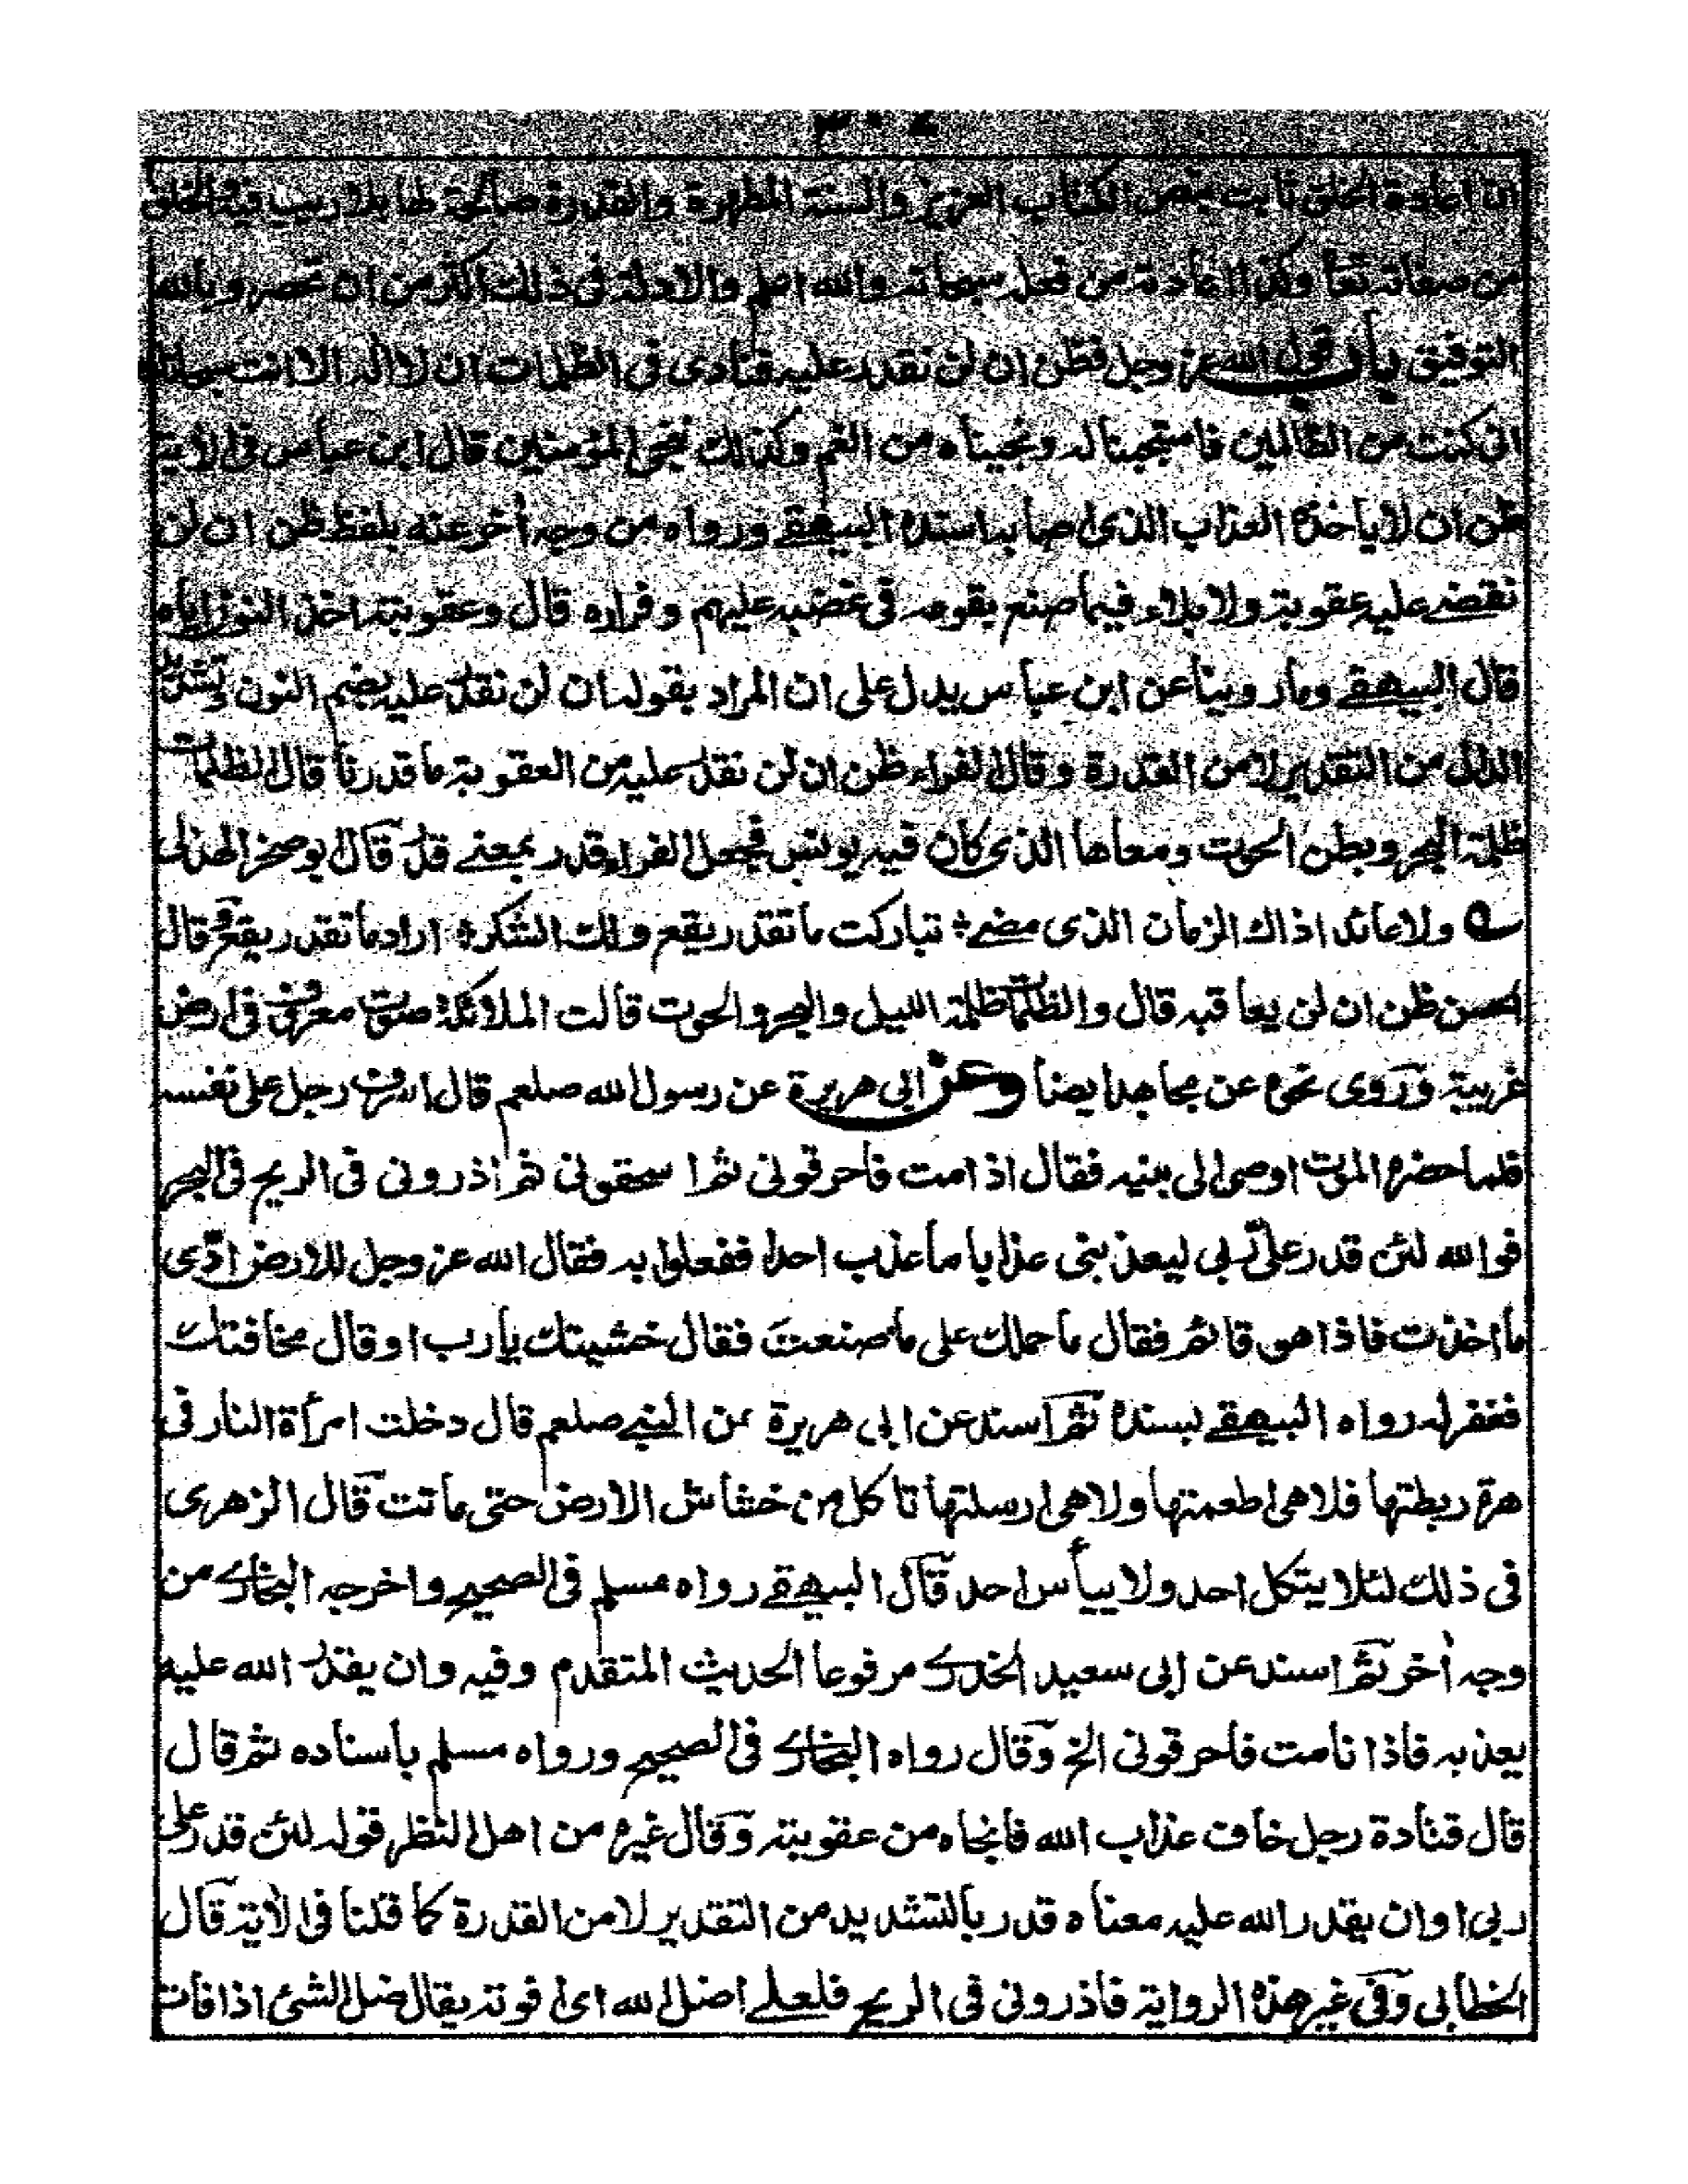 ان اعادة الخلق ثابت بنص الكتاب العزيز والسنة المطهرة والقدرة صالحة لها بلا ريب فيه والخلق
من صفاته تعا وكذا الاعادة من فعله سبحانه والله اعلم والادلة فى ذلك اكثر من ان تحصر وبالله
التوفيق باب قول الله عز وجل فظن ان لن نقدر عليه فنادى فى الظلمات ان لا اله الا انت سبحانك
انى كنت من الظالمين فاستجبنا له ونجيناه من الغم وكذلك ننجى المؤمنين قال ابن عباس فى الاية
ظن ان لا يأخذه العذاب الذى اصابه اسنده البيهقے ورواه من وجه أخر عنه بلفظ ظن ان لن
نقضے عليه عقوبة ولا بلاء فيما صنع بقومه فى غضبه عليهم وفراره قال وعقوبته اخذ النون اياه
قال البيهقے وما روينا عن ابن عباس يدل على ان المراد بقوله ان لن نقدر عليه بضم النون وتشديد
الدال من التقدير لا من القدرة وقال الفراء ظن ان لن نقدر عليه من العقوبة ما قدرنا قال الظلمات
ظلمة البحر وبطن الحوت ومعاها الذى كان فيه يونس فجعل الفراء قدر بمعنے قدّر قال ابو صخر الهذلى
ے ولا عائد اذاك الزمان الذى مضے ؞ تباركت ما تقدر يقع ولك الشكر ؞ اراد ما تقدر يقع وقال
الحسن ظن ان لن يعاقبه قال والظلمات ظلمة الليل والبحر والحوت قالت الملائكة صوت معروف فى ارض
غريبة وروى نحوه عن مجاهد ايضا وعن ابى هريرة عن رسول الله صلعم قال اسرف رجل على نفسه
فلما حضره الموت اوصى الى بنيه فقال اذا مت فاحرقونى ثم اسحقونى ثم اذرونى فى الريح فى البحر
فوالله لئن قدر علىّ ربى ليعذبنى عذابا ما عذب احدا ففعلوا به فقال الله عز وجل للارض ادّى
ما اخذت فاذا هو قائم فقال ما حملك على ما صنعت فقال خشيتك يأرب او قال مخافتك
فغفر له رواه البيهقے بسنده ثم اسند عن ابى هريرة عن النبے صلعم قال دخلت امرأة النار فى
هرة ربطتها فلا هى اطعمتها ولا هى ارسلتها تاكل من خشاش الارض حتى ماتت قال الزهرى
فى ذلك لئلا يتكل احد ولا ييأس احد قال البيهقے رواه مسلم فى الصحيح واخرجه البخارے من
وجه أخر ثم اسند عن ابى سعيد الخدرے مرفوعا الحديث المتقدم وفيه وان يقدر الله عليه
يعذبه فاذا نامت فاحرقونى الخ وقال رواه البخارے فى الصحيح ورواه مسلم بأسناده ثم قال
قال قتادة رجل خاف عذاب الله فانجاه من عقوبته وقال غيره من اهل النظر قوله لئن قدر على
ربى او ان يقدر الله عليه معناه قدر بالتشديد من التقدير لا من القدرة كما قلنا فى الاية قال
الخطابى وفى غير هذه الرواية فاذرونى فى الريح فلعلے اضل الله اى افوته يقال ضل الشئ اذا فات